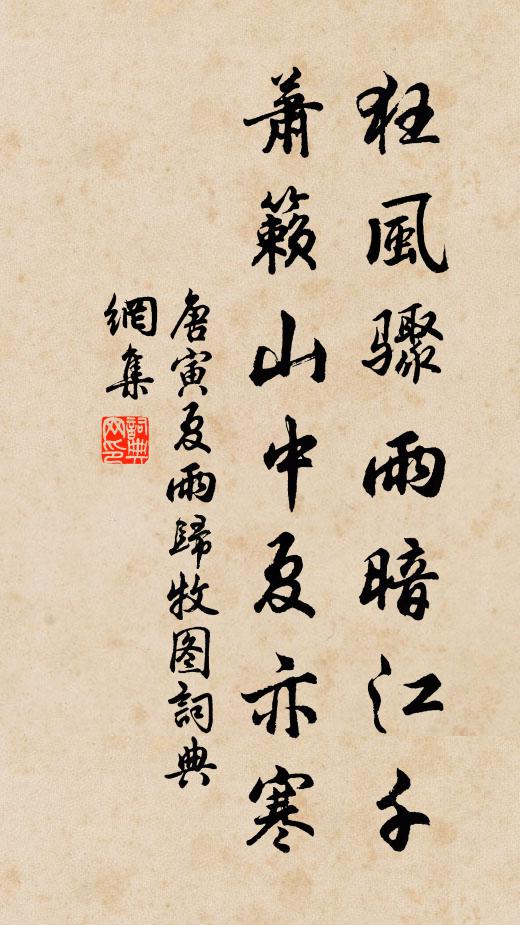 狂風骤雨暗江千
蕭籟山中夏亦寒
唐寅夏雨歸牧图詞典
網集
詞典
网印